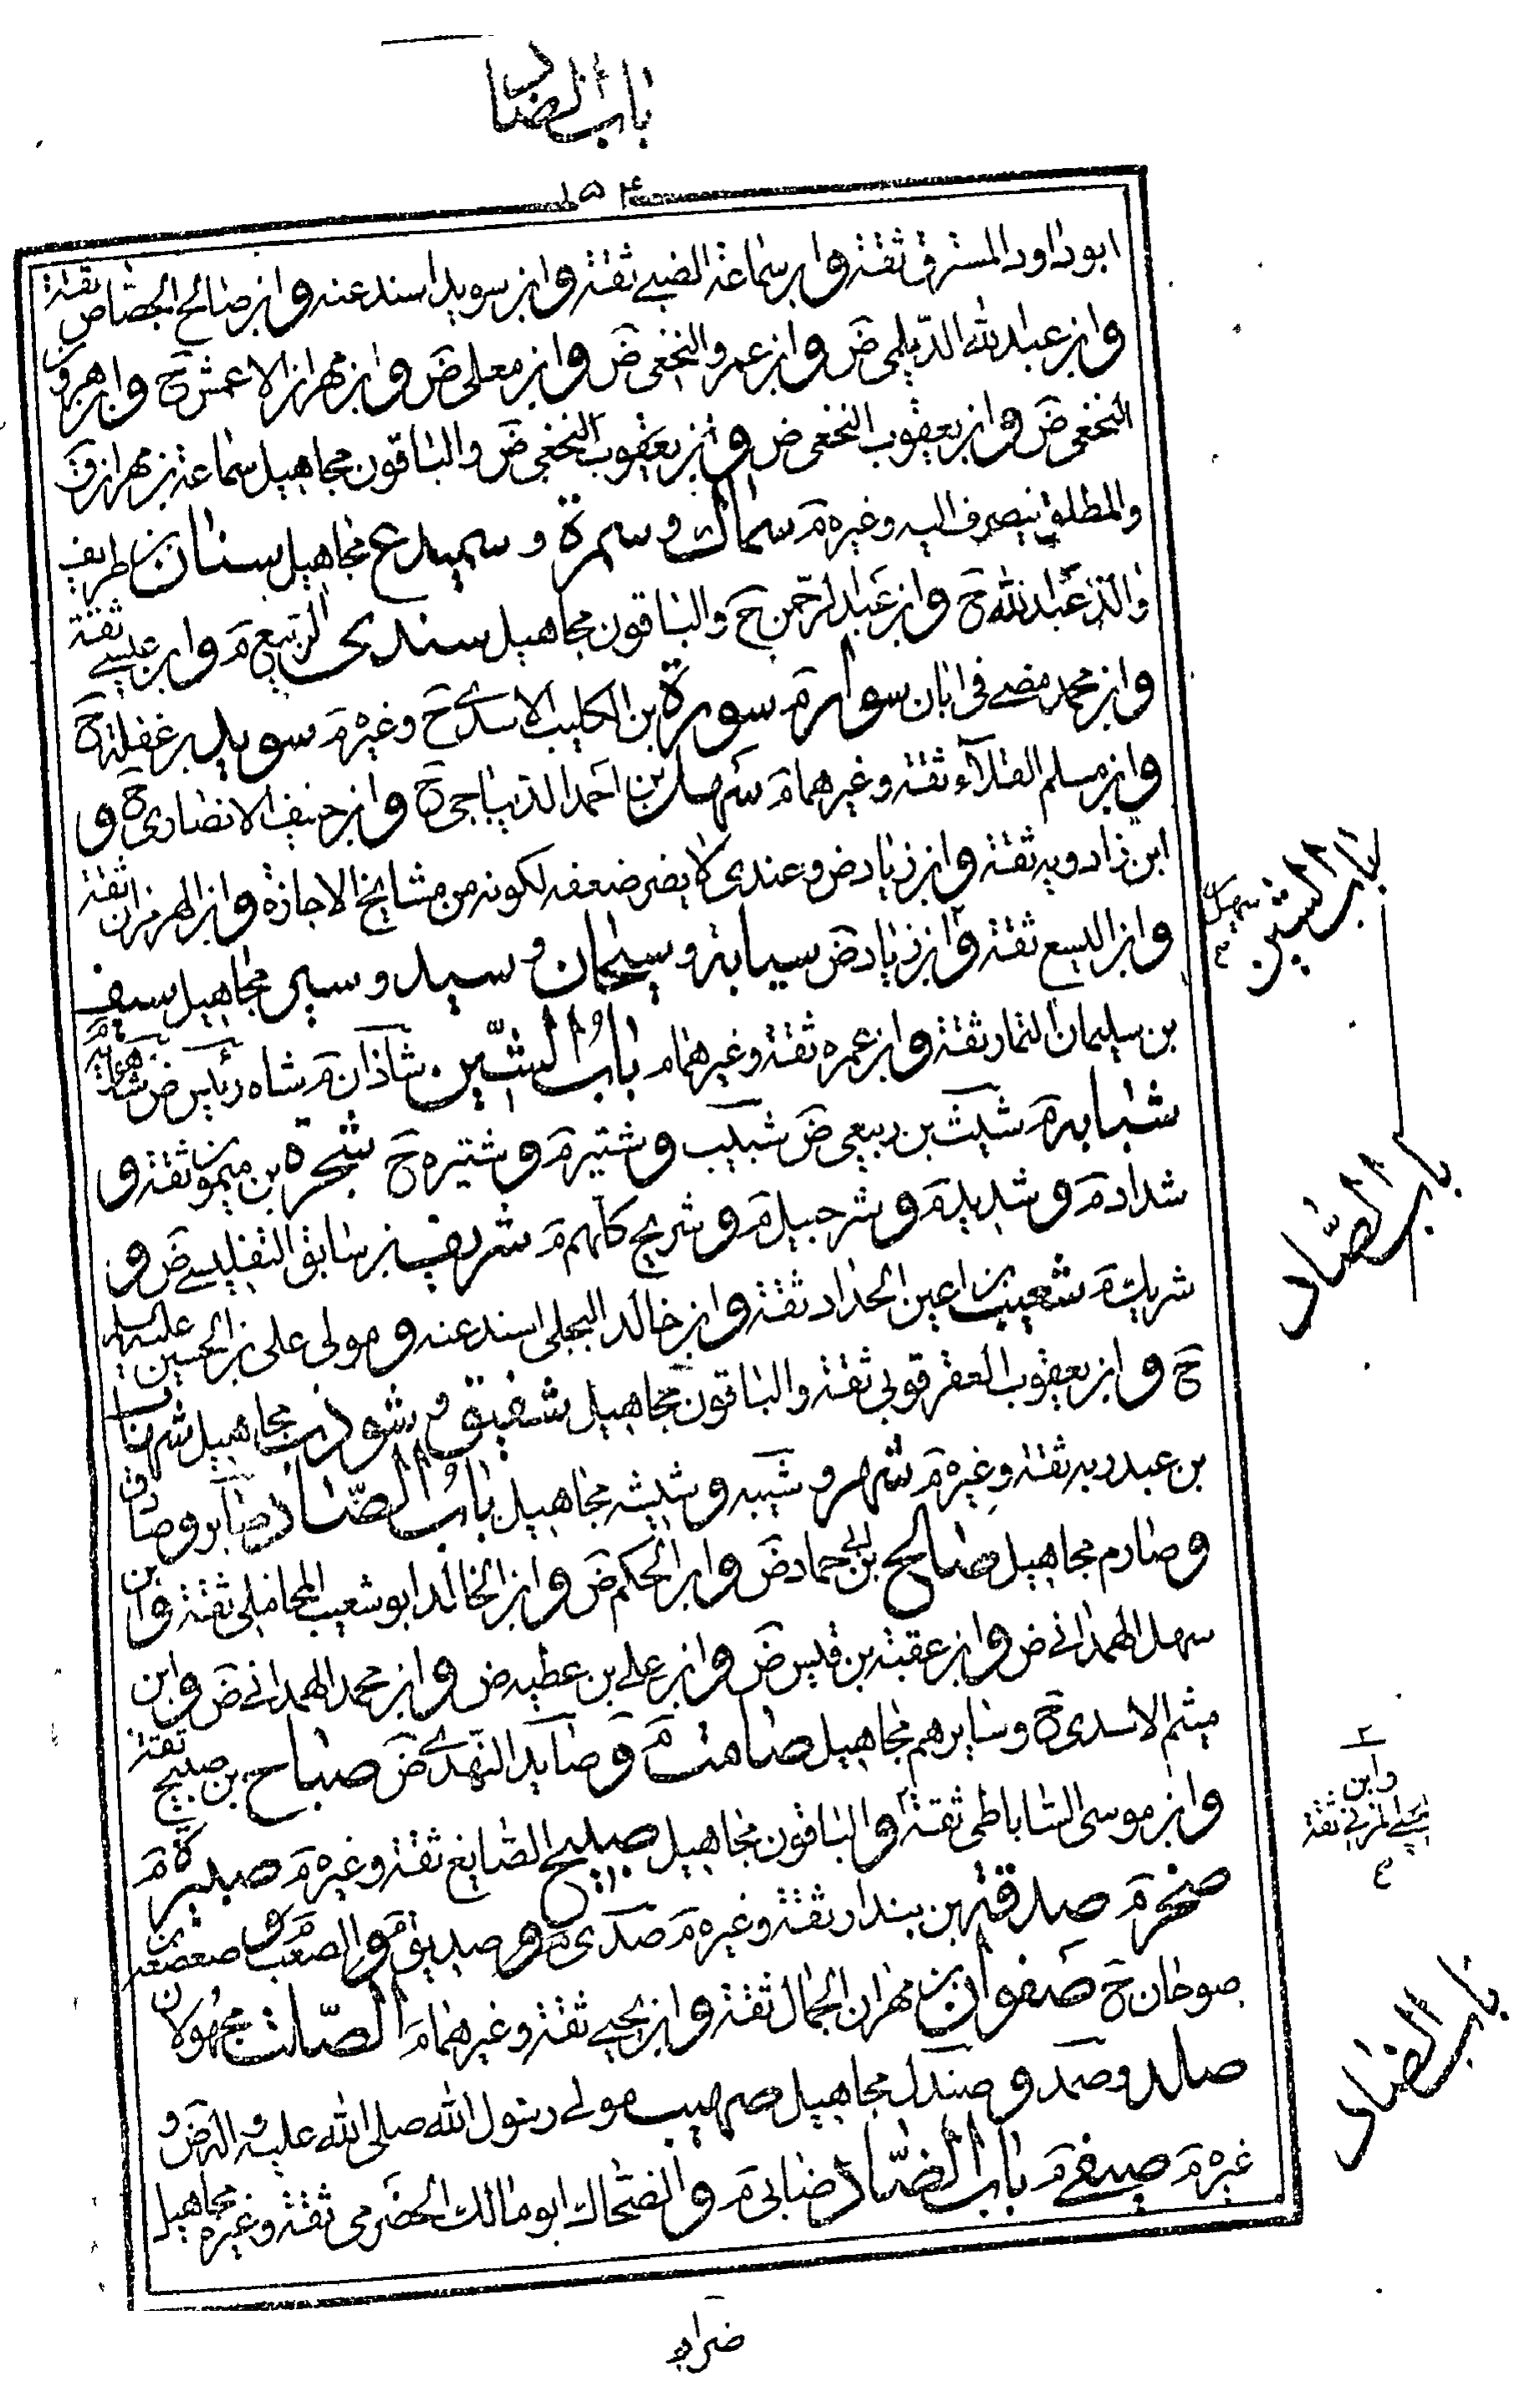 باب الضاد
١٥٤
ابو داود المسترق ثقة وابن سماعة الضبي ثقة وابن سويد اسند عنه وابن صالح الجصاص ثقة
وابن عبدالله الديلمي ض وابن عمرو النخعي ض وابن معلى ض وابن مهران الاعمش ح وابن هرون
النخعي ض وابن يعقوب النخعي ض وابن يعقوب النخعي ض والباقون مجاهيل سماعة بن مهران ق
والمطلق ينصرف اليه وغيره م سماك وسمرة و سميدع مجاهيل سنان بن طريف
والد عبدالله ح وابن عبدالرحمن ح والباقون مجاهيل سندى الربيع م وابن عيسى ثقة
وابن محمد مضى في ابان سوار م سورة بن الكليب الاسدي ح وغيره م سويد بن غفلة ح
وابن مسلم القلاء ثقة وغيرهما م سهل بن احمد الديباجي ح وابن حنيف الانصاري ح و
ابن زادويه ثقة وابن زياد ض وعندى لا يضر ضعفه لكونه من مشايخ الاجازة وابن الهرمزان ثقة
وابن اليسع ثقة وابن زياد ض سيابة و سيحان و سيد و سير مجاهيل سيف
بن سليمان التمار ثقة وابن عميرة ثقة وغيرهما م باب الشين شاذان م شاه رئيس ض
شبابه م شبث بن ربعي ض شبيب وشتير م وشتيره ح شجرة بن ميمون ثقة و
شداد م و شديد م و شرحبيل م و شريح كلهم م شريف بن سابق التفليسي ض و
شريك م شعيب بن اعين الحداد ثقة وابن خالد البجلي اسند عنه ومولى علي بن الحسين عليه السلام
ح وابن يعقوب العقرقوبي ثقة والباقون مجاهيل شفيق و شوذب مجاهيل شهاب
بن عبد ربه ثقة وغيره م شهر و شيبه و شيثه مجاهيل باب الصاد صابر وصادق
وصارم مجاهيل صالح بن ابي حماد ض وابن الحكم ض وابن الخالد ابو شعيب المحاملي ثقة وابن
سهل الهمداني ض وابن عقبة بن قيس ض وابن علي بن عطيه ض وابن محمد الهمداني ض وابن
ميثم الاسدى ح وسايرهم مجاهيل صامت م وصايد النهدي ض صباح بن صبيح ثقة
وابن موسى الساباطي ثقة والباقون مجاهيل صبيح الصايغ ثقة وغيره م صبيرة م
صخر م صدقة بن بندار ثقة وغيره م صدى م وصديق م والصعب م صعصعه بن
صوحان ح صفوان بن مهران الجمال ثقة وابن يحيى ثقة وغيرهما م الصلت مجهولان
صلد وصمد و صندل مجاهيل صهيب مولى رسول الله صلى الله عليه واله ض و
غيره م صيفي م باب الضاد ضابى م والضحاك ابو مالك الحضرمي ثقة وغيره مجاهيل
ضرار
باب الشين
سهيل
م
باب الصاد
٢
وابن
يحيى المزني ثقة
م
باب الضاد